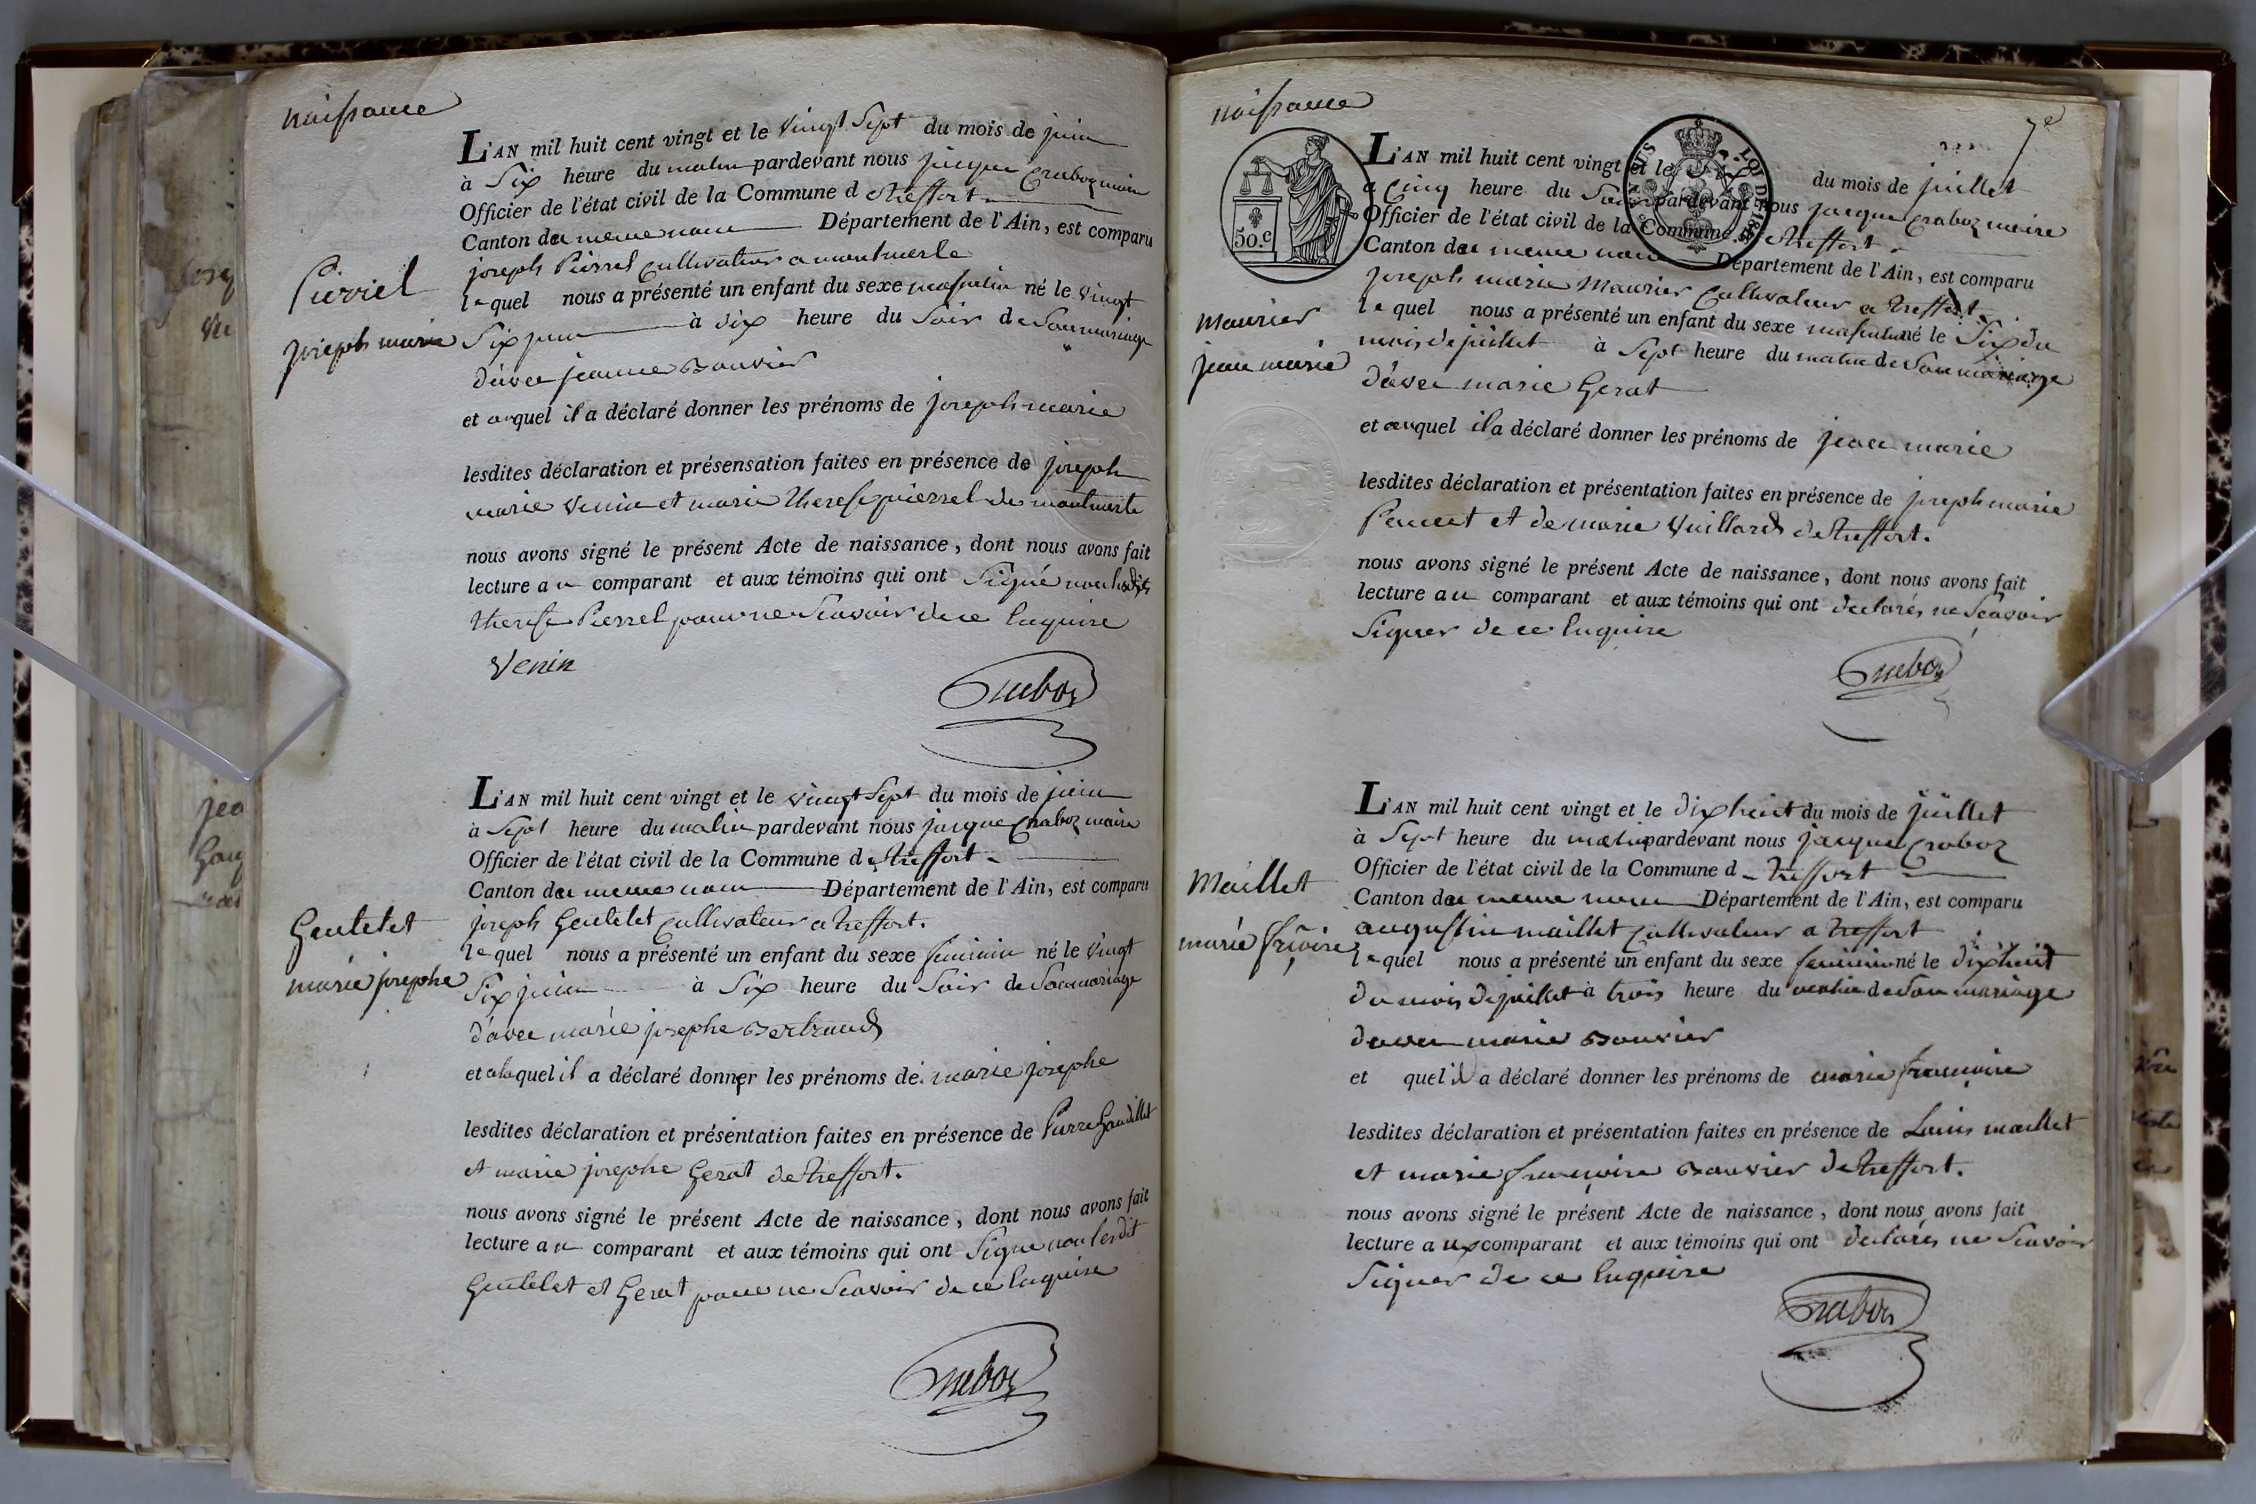 naissance
L'AN mil huit cent vingt et le vingt Sept du mois de juin
à Six heure du matin pardevant nous jacque Craboz maire
Officier de l'état civil de la Commune de treffort
Canton du meme nom Département de l'Ain, est comparu
joseph Pierrel Cultivateur a montmerle
lequel nous a présenté un enfant du sexe masculin né le vingt
Pierrel
joseph marie
Six juin à dix heure du Soir de Son mariage
d'avec jeanne Bouvier
et auquel il a déclaré donner les prénoms de joseph marie
lesdites déclaration et présensation faites en présence de joseph
marie Venin et marie therese pierrel de montmerle
nous avons signé le présent Acte de naissance, dont nous avons fait
lecture au comparant et aux témoins qui ont Signé non lesdits
therese Pierrel pour ne Scavoir de ce Enquire
Venin
Craboz
L'AN mil huit cent vingt et le vingt Sept du mois de juin
à Sept heure du matin pardevant nous jacque Craboz maire
Officier de l'état civil de la Commune de treffort
Canton du meme nom Département de l'Ain, est comparu
joseph Gentelet Cultivateur a treffort.
lequel nous a présenté un enfant du sexe feminin né le vingt
Gentelet
marie josephe
Six juin à Six heure du Soir de Son mariage
d'avec marie josephe Bertrand
et alaquel il a déclaré donner les prénoms de marie josephe
lesdites déclaration et présentation faites en présence de Pierre Gaudillet
et marie josephe Gerat de treffort.
nous avons signé le présent Acte de naissance, dont nous avons fait
lecture au comparant et aux témoins qui ont Signé non lesdit
Gentelet et Gerat pour ne Scavoir de ce Enquire
Craboz
naissance
7e
50.c
LOI DE 1816
L'AN mil huit cent vingt et le du mois de juillet
a Cinq heure du Soir pardevant nous jacque Craboz maire
Officier de l'état civil de la Commune de treffort
Canton du meme nom Département de l'Ain, est comparu
joseph marie Maurier Cultivateur a treffort
lequel nous a présenté un enfant du sexe masculin né le Six du
Maurier
jean marie
mois de juillet à Sept heure du matin de Son mariage
d'avec marie Gerat
et auquel il a déclaré donner les prénoms de jean marie
lesdites déclaration et présentation faites en présence de joseph marie
et de marie Vuillard de treffort.
nous avons signé le présent Acte de naissance, dont nous avons fait
lecture au comparant et aux témoins qui ont declarés ne Scavoir
Signer de ce Enquire
Craboz
L'AN mil huit cent vingt et le dix huit du mois de juillet
à Sept heure du matin pardevant nous jacque Craboz
Officier de l'état civil de la Commune de treffort
Canton du meme nom Département de l'Ain, est comparu
augustin maillet Cultivateur a treffort
lequel nous a présenté un enfant du sexe feminin né le dix huit
Maillet
marie frcoise
du mois de juillet à trois heure du matin de Son mariage
d'avec marie Bouvier
et quel il a déclaré donner les prénoms de marie francoise
lesdites déclaration et présentation faites en présence de Louis maillet
et marie francoise Bouvier de treffort.
nous avons signé le présent Acte de naissance, dont nous avons fait
lecture aux comparant et aux témoins qui ont declarés ne Scavoir
Signer de ce Enquire
Craboz